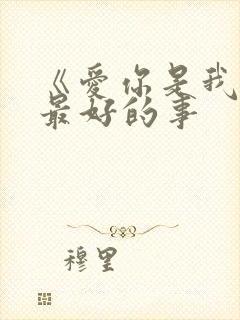 《爱你是我
最好的事
穆里